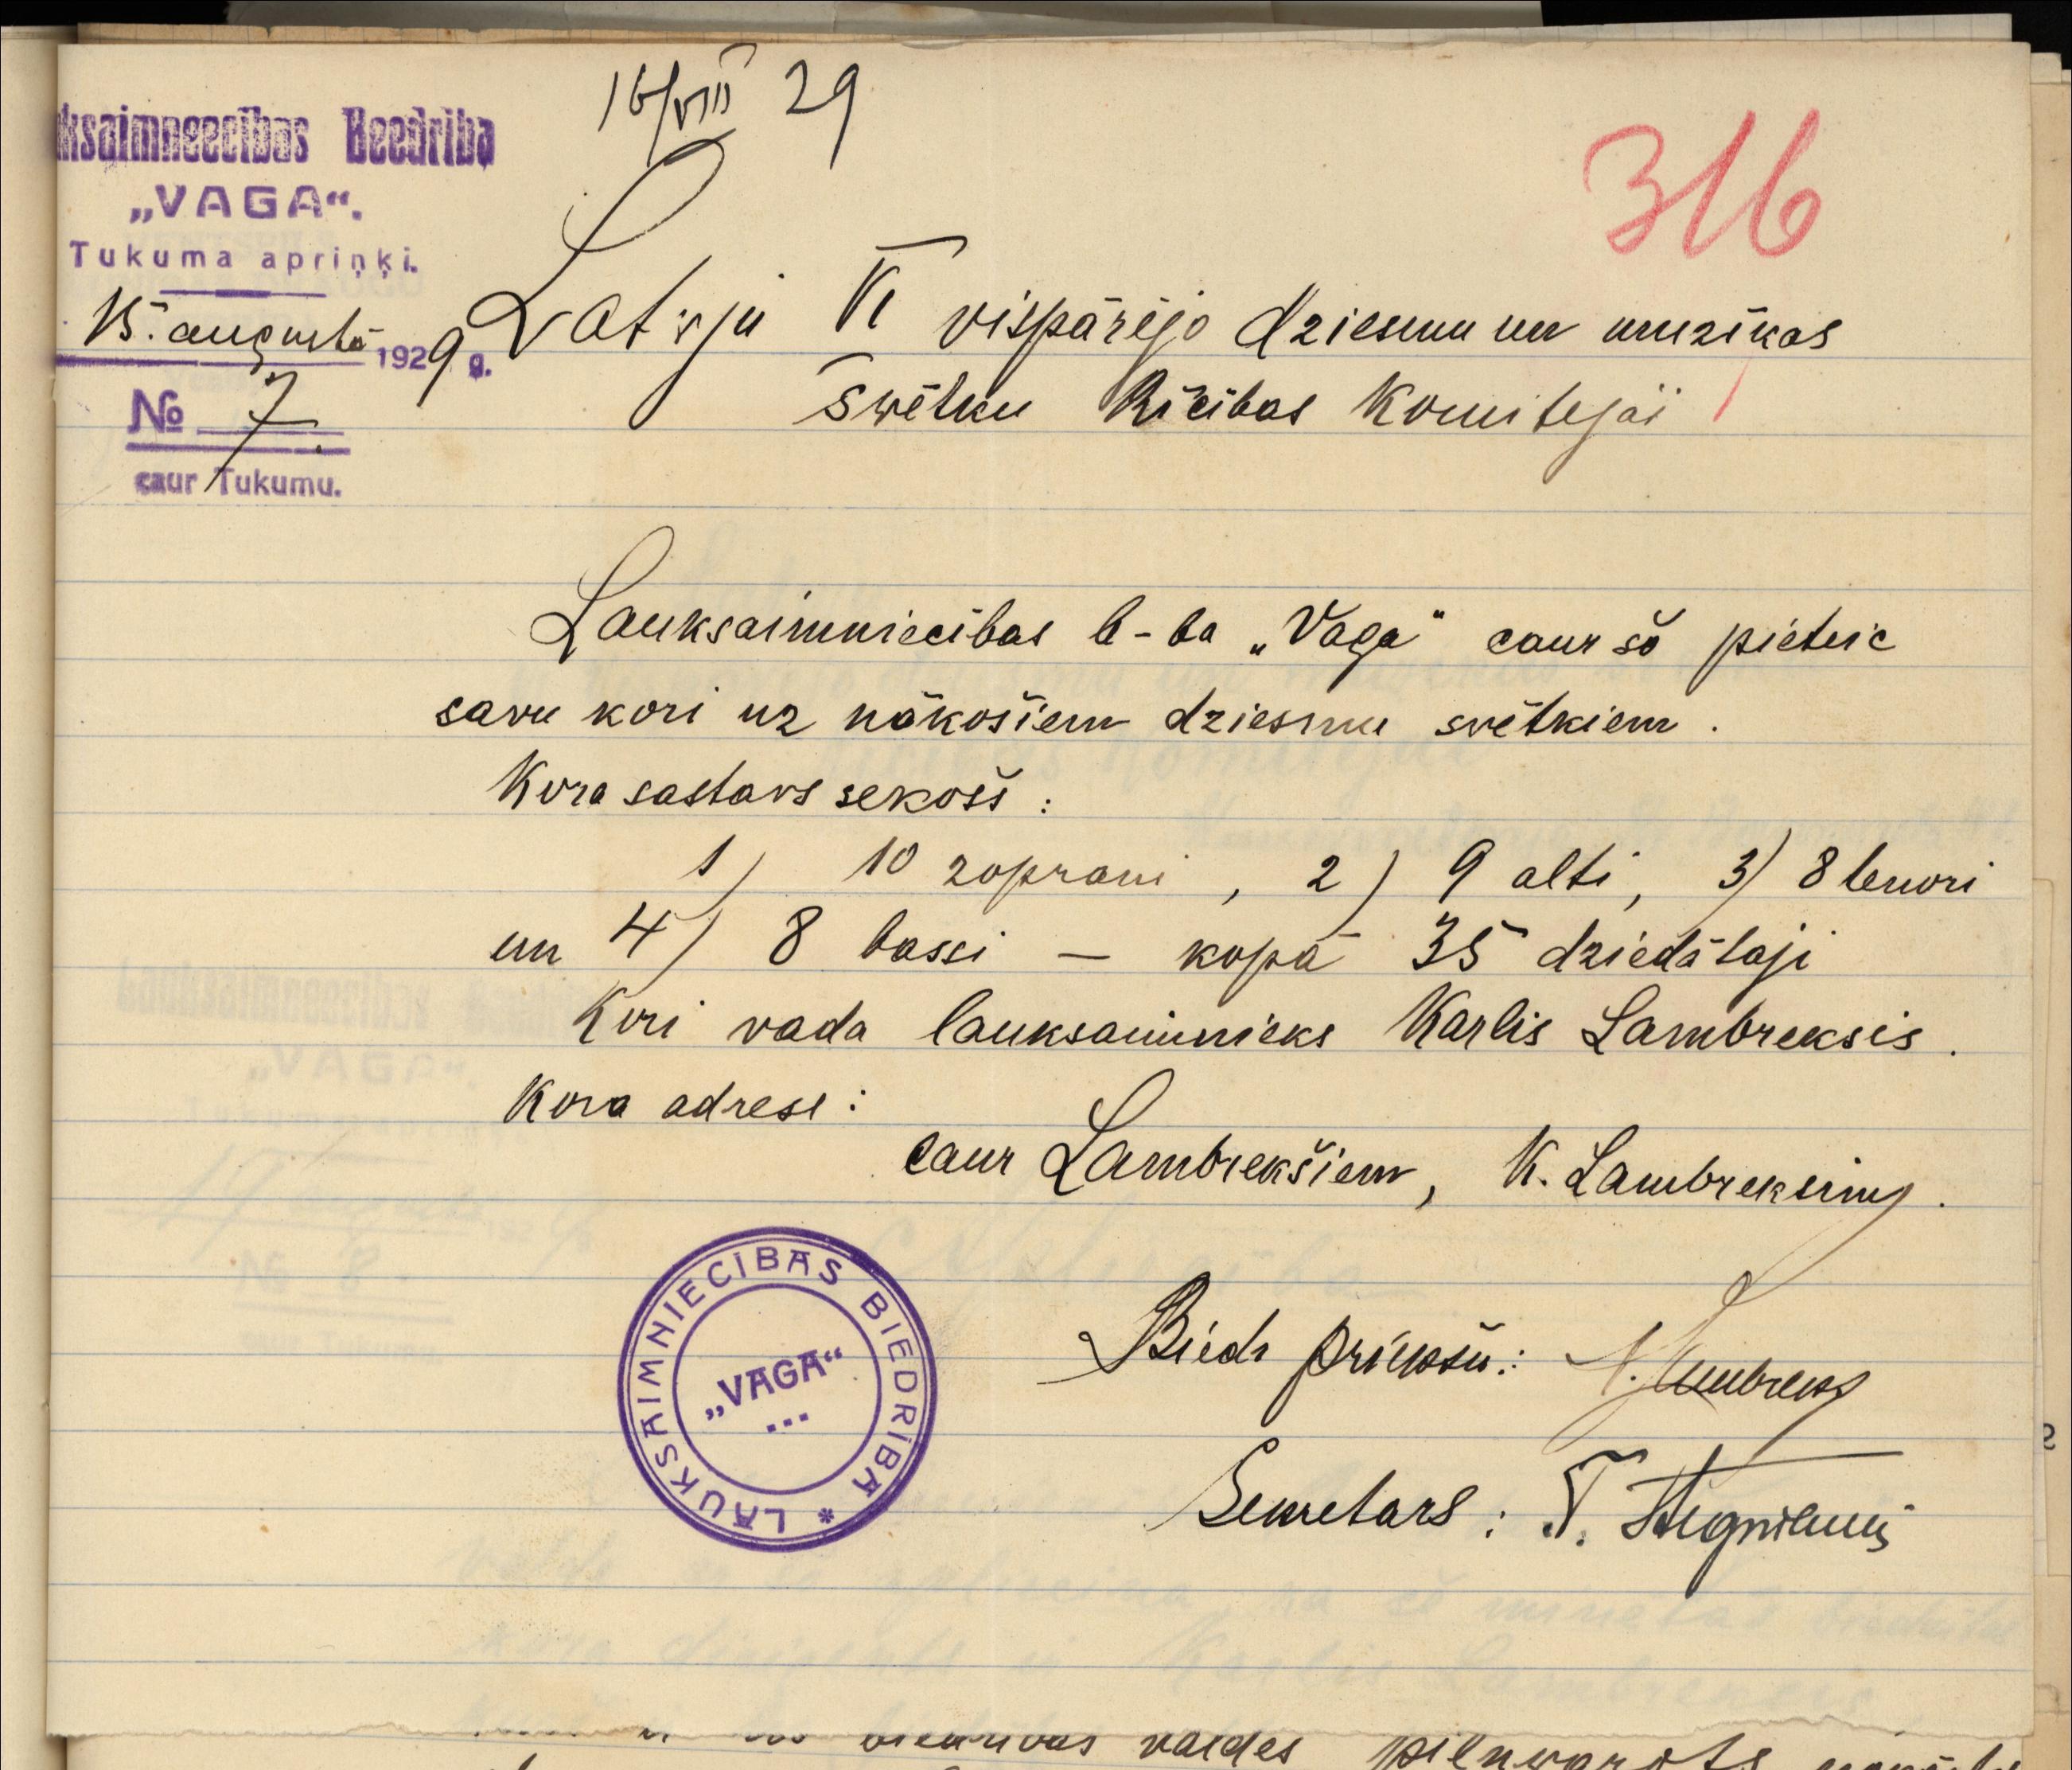 16/VIII 29
316
ksaimneecības Beedrība
„VAGA“.
Tukuma apriņķi.
15. augustā 1929 g.
No 7.
caur Tukumu.
Latvju VI vispārējo dziesmu un muzikas
Swētku Rīcības Komitejai
Lauksaimniecības b-ba „Vaga“ caur šo pieteic
savu kori uz nākošiem dziesmu svētkiem.
Kora sastavs sekošs:
1) 10 zoprani, 2) 9 alti, 3) 8 tenori
un 4) 8 bassi — kopā 35 dziedātaji
Kori vada lauksaimnieks Karlis Lambreksis.
Kora adrese:
caur Lambrekšiem, K. Lambreksim.
LAUKSAIMNIECĪBAS BIEDRĪBA *
„VAGA“
Biedr priekšn.:
Sekretars: T.
biedribas valdes pilnwarots